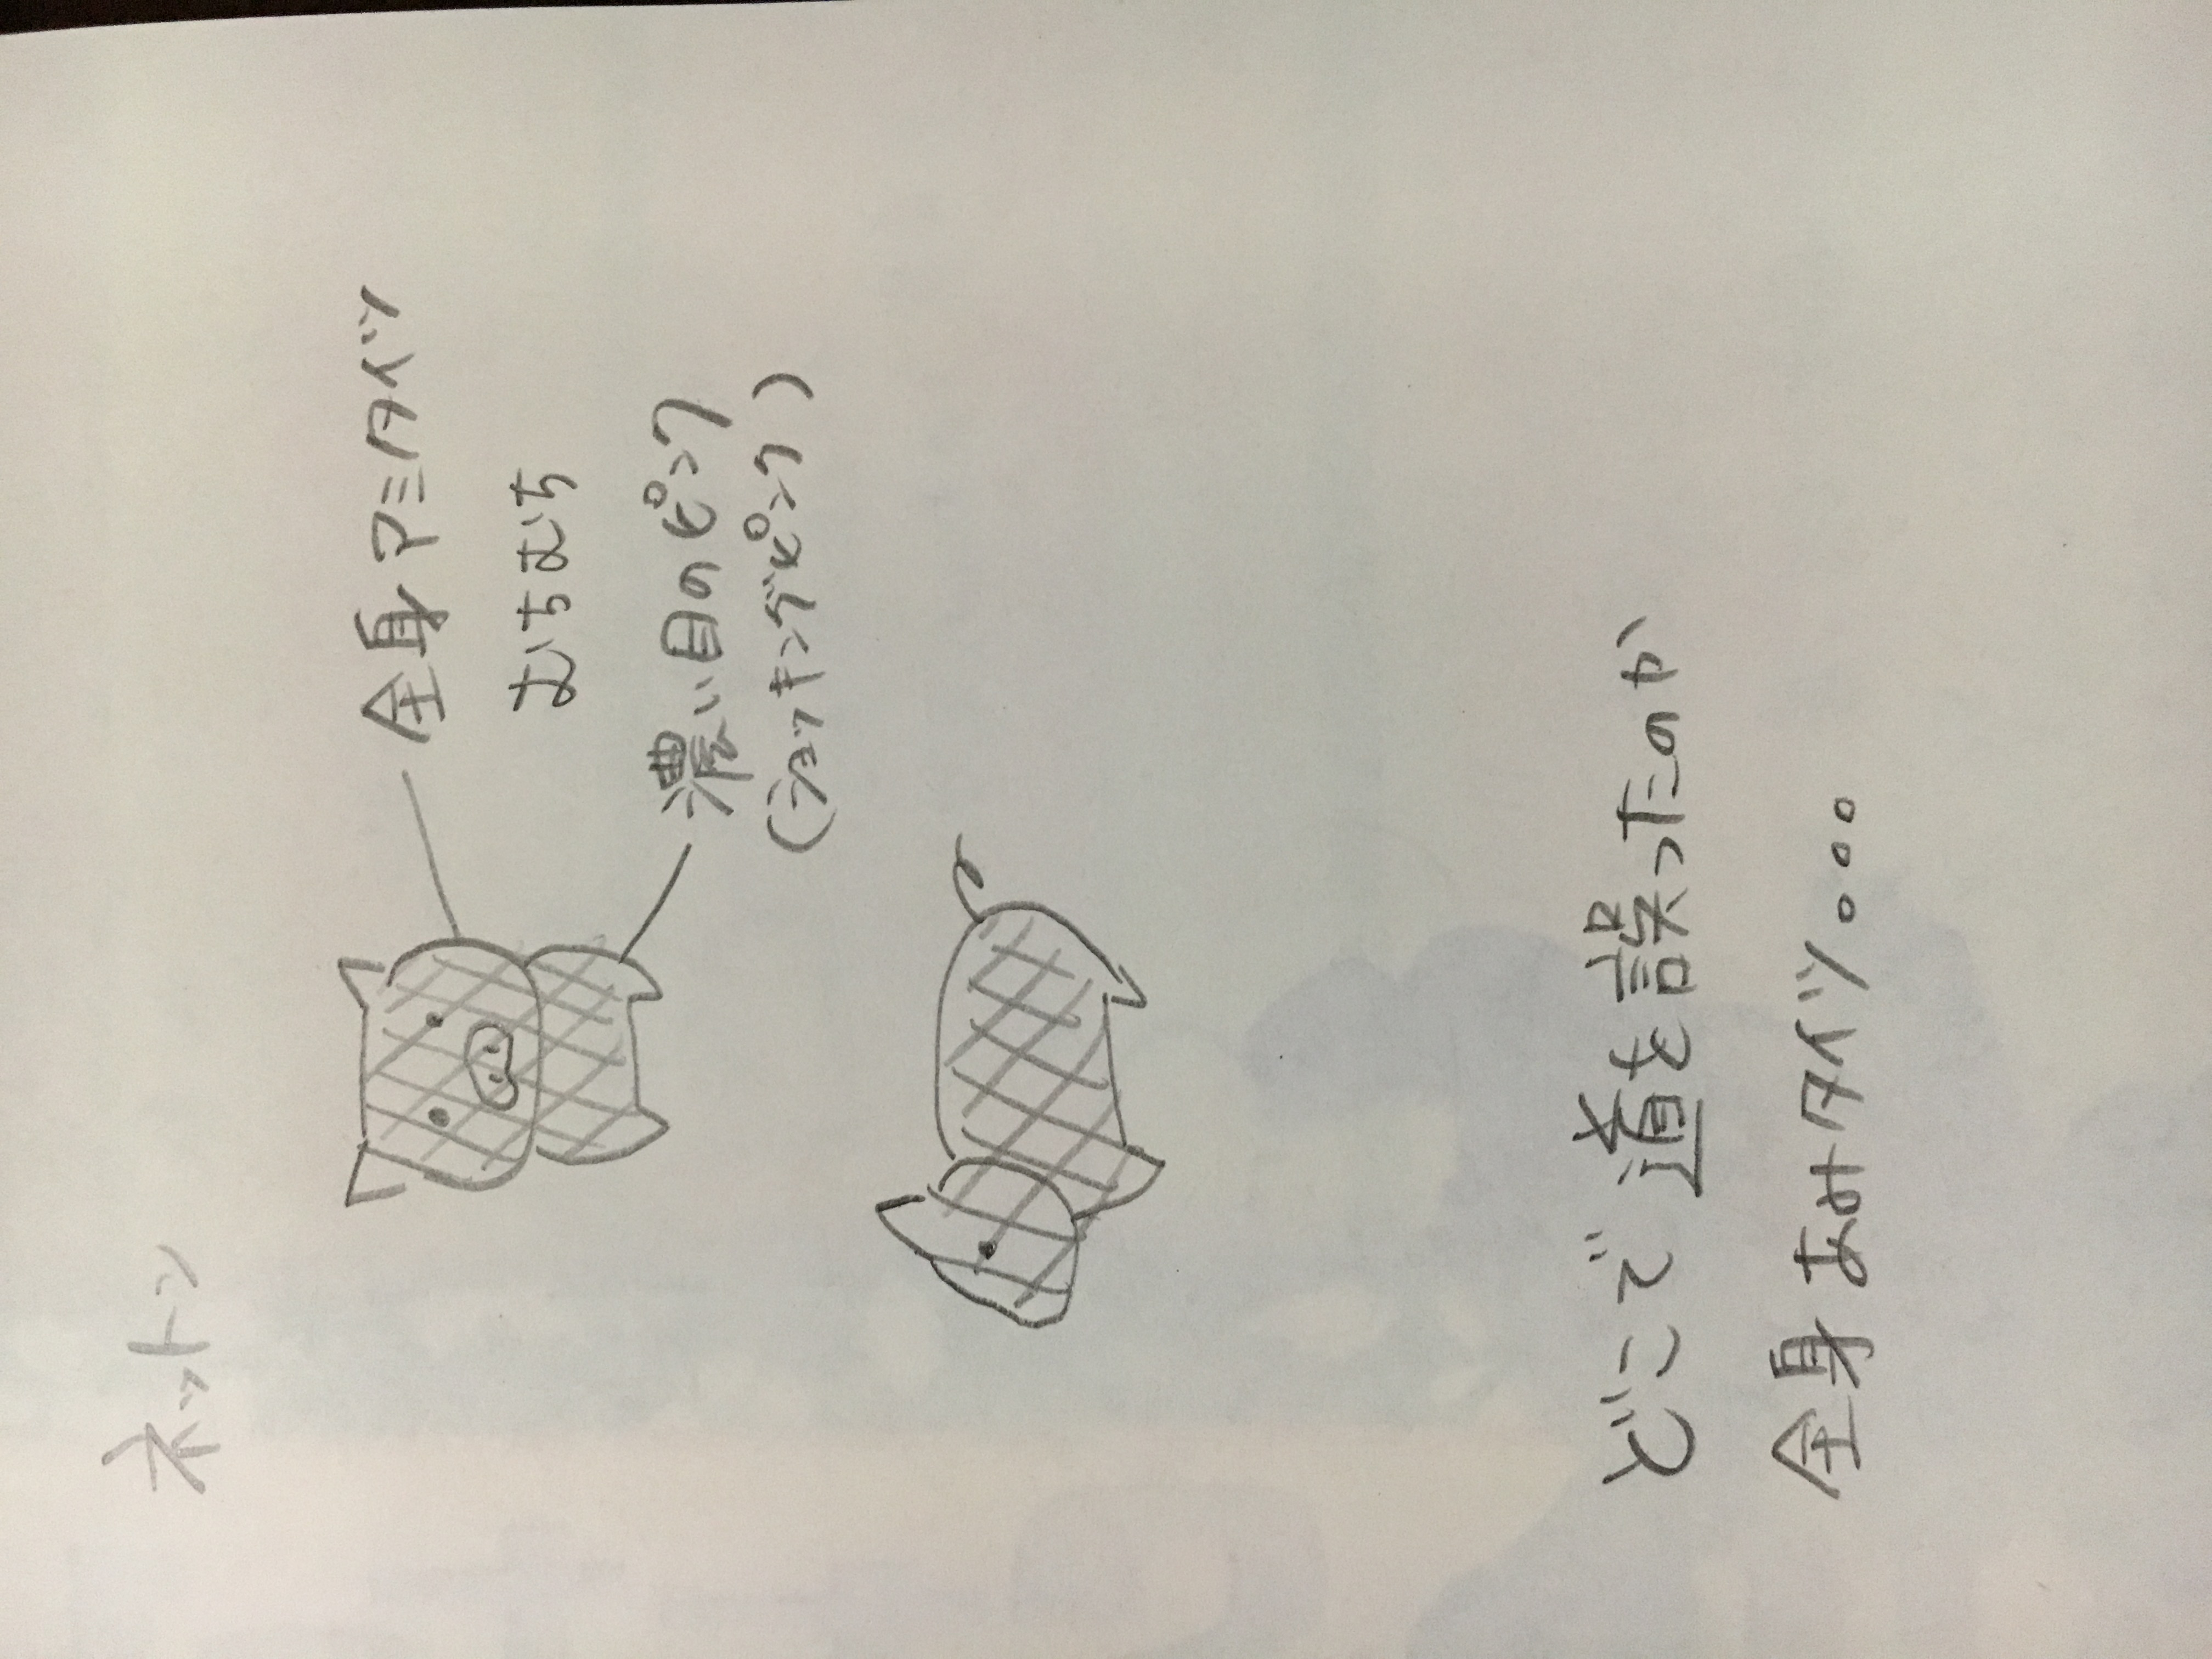 ネットン
全身アミタイツ
むちむち
濃い目のピンク
(ショッキングピンク)
どこで道を誤ったのか
全身あみタイツ。。。